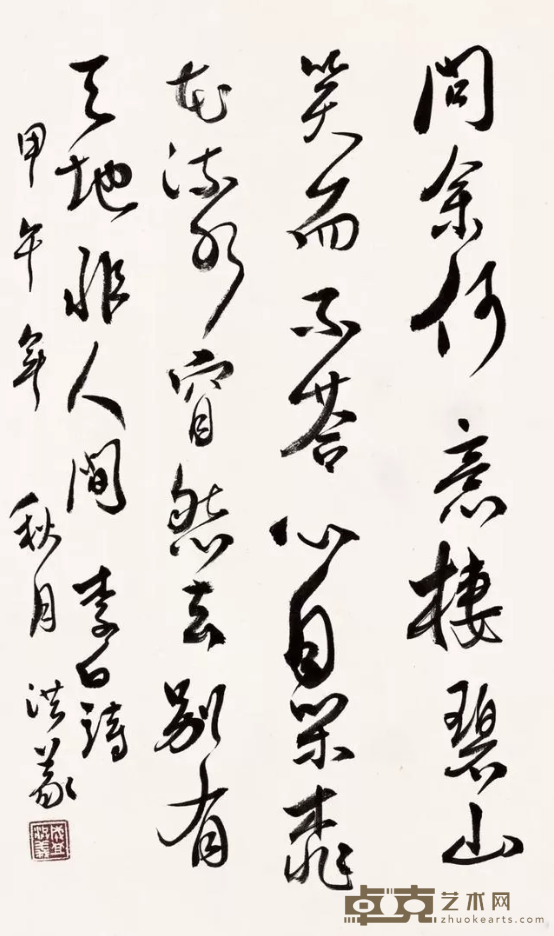 問余何意棲碧山
笑而不荅心自閑桃
花流水窅然去别有
天地非人間 李白詩
甲午年秋月 洪義
卓克艺术网
zhuokearts.com